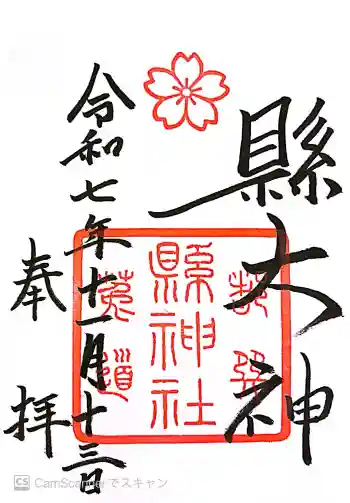 縣大神
縣神社
莵道
令和七年十一月十三日
奉拝
CS CamScannerでスキャン